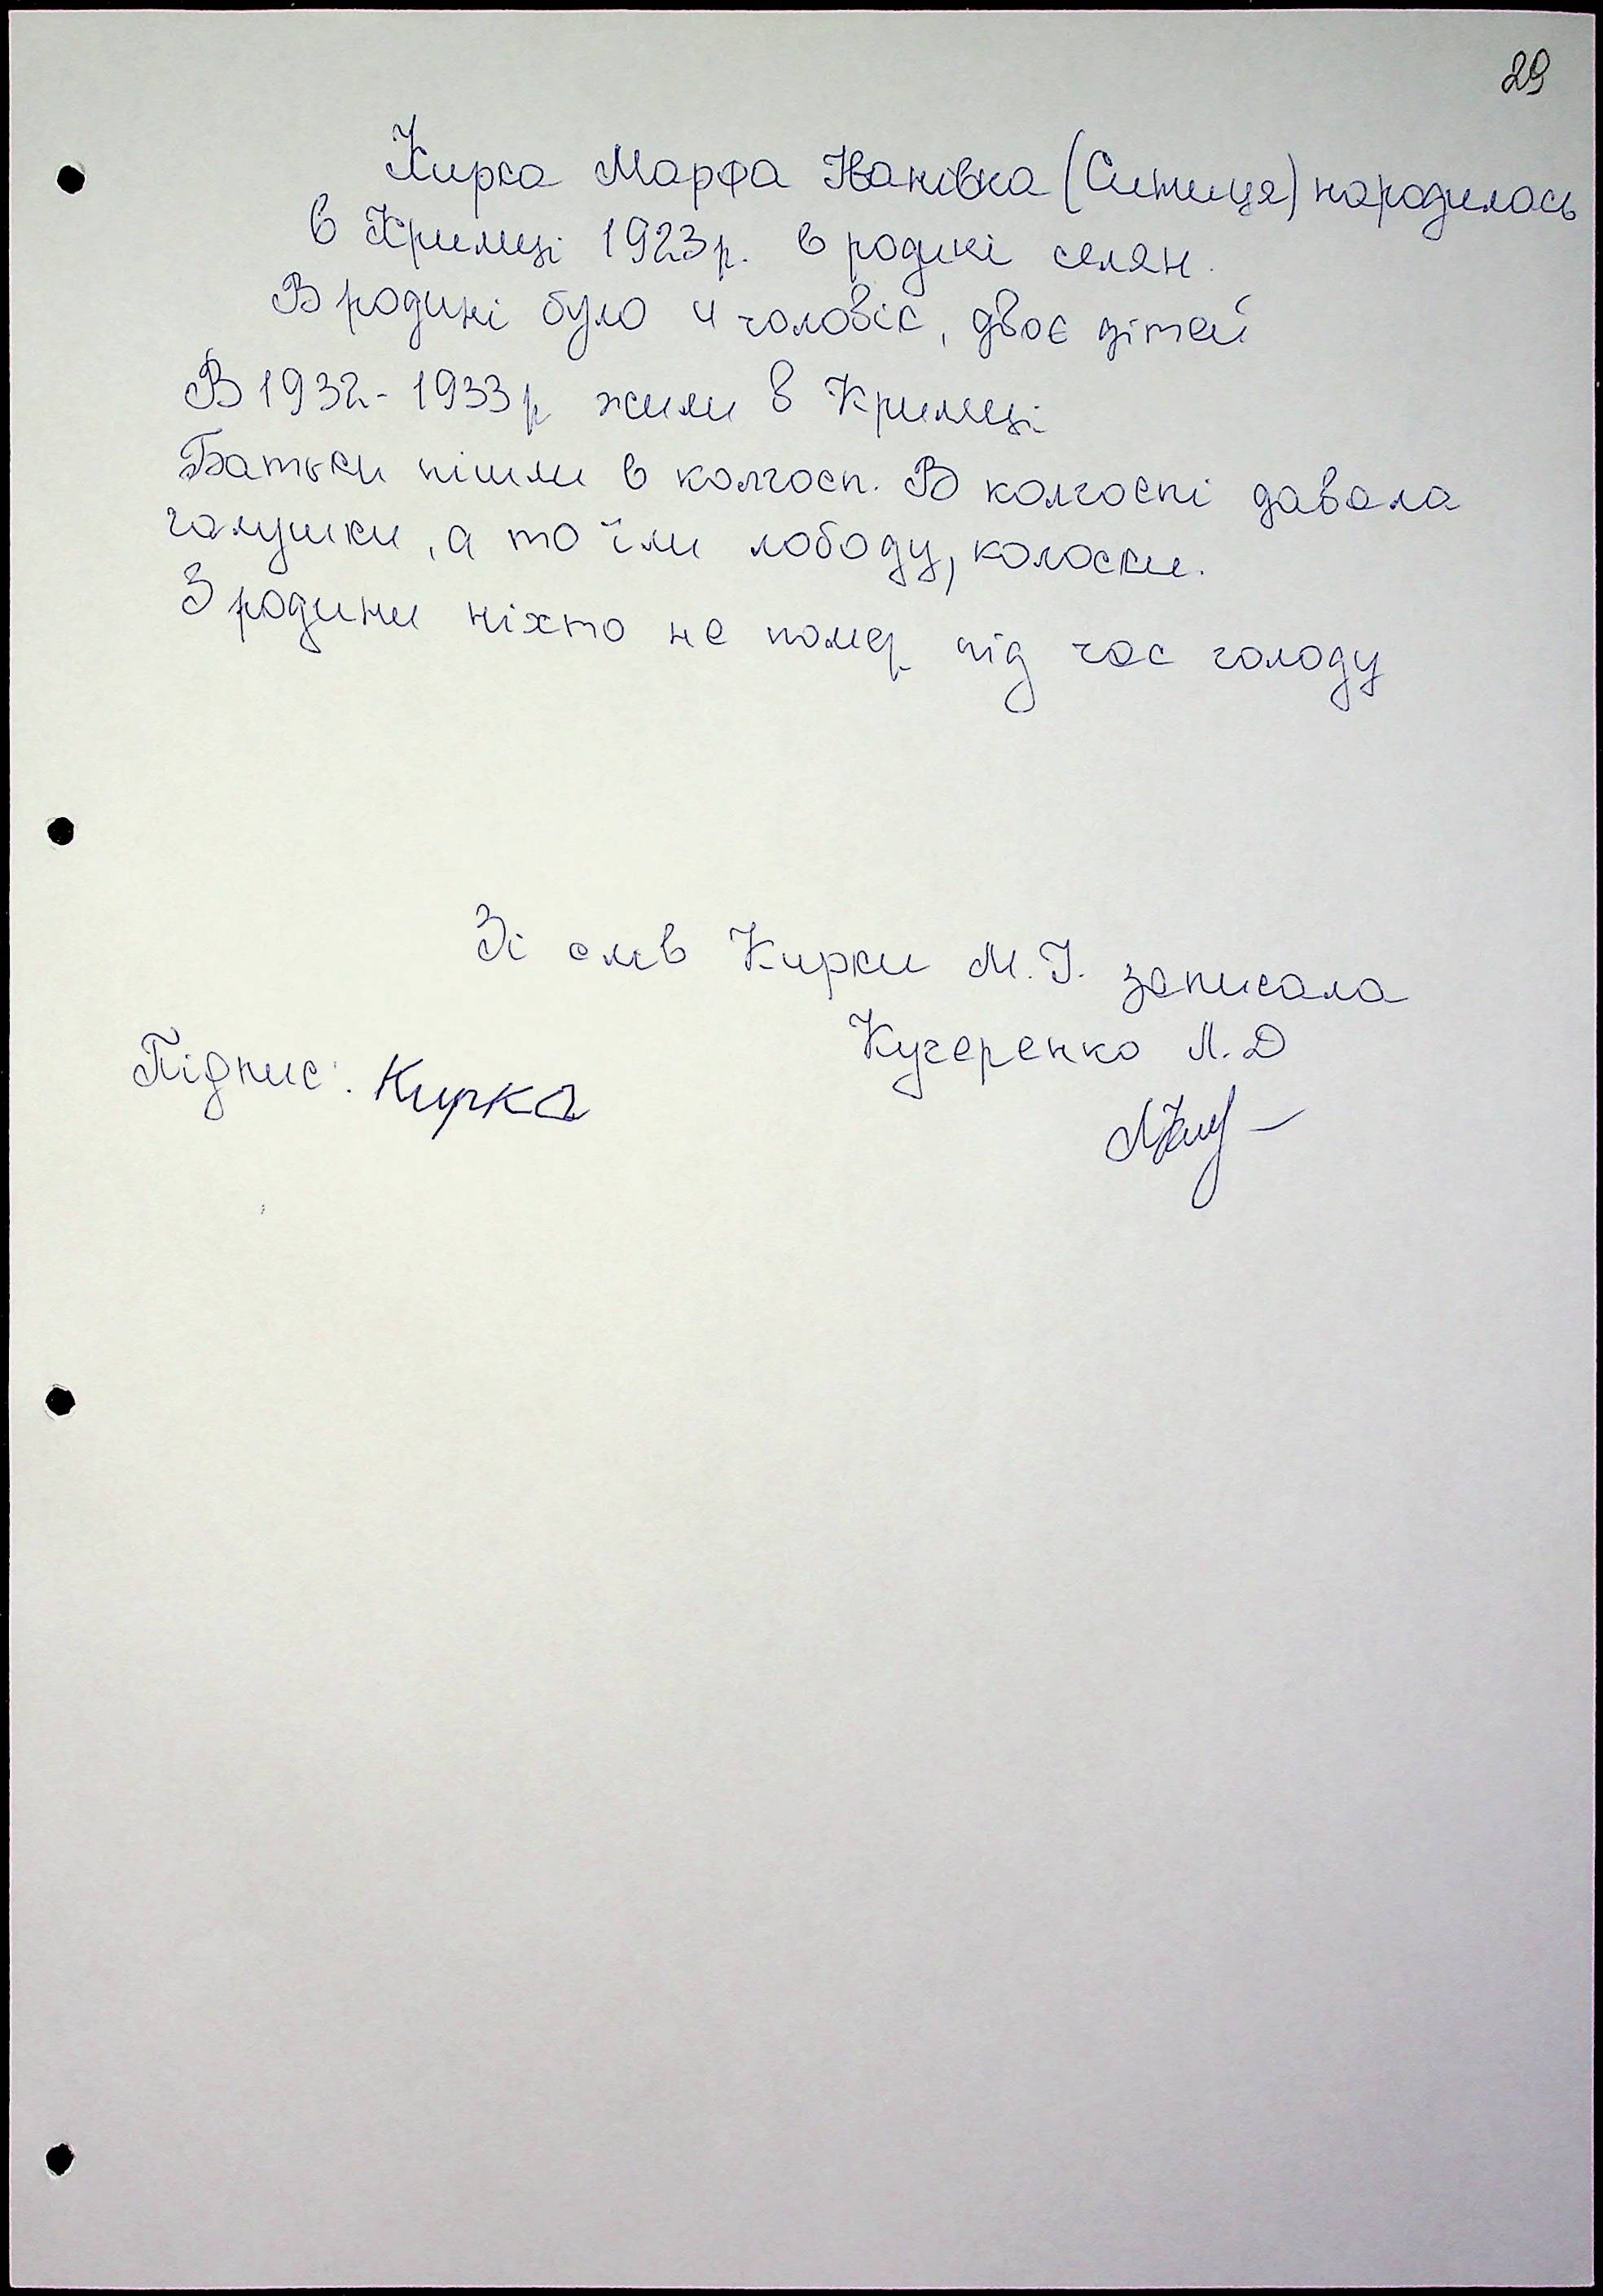 29
Кирка Марфа Іванівка (Синиця) народилась
в Кримці 1923р. в родині селян.
В родині було 4 чоловік, двоє дітей
В 1932-1933р жили в Кримці
Батьки пішли в колгосп. В колгоспі давала
галушки, а то їли лободу, колоски.
З родини ніхто не помер під час голоду
Зі слів Кирки М.І. записала
Кучеренко Л.Д
Підпис: Кирка